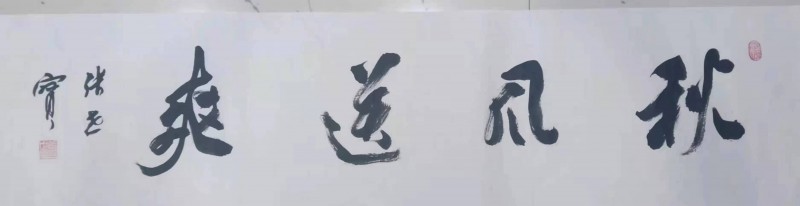 秋风送爽